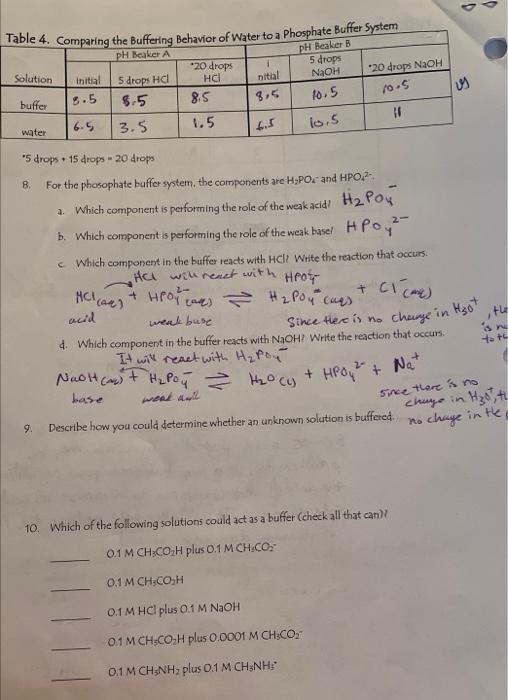 Table 4. Comparing the Buffering Behavior of Water to a Phosphate Buffer System
pH Beaker A pH Beaker B
Solution Initial 5 drops HCl *20 drops HCl I nitial 5 drops NaOH *20 drops NaOH
buffer 8.5 8.5 8.5 8.5 10.5 10.5
water 6.5 3.5 1.5 6.5 10.5 11
*5 drops + 15 drops = 20 drops
8. For the phosophate buffer system, the components are H₂PO₄⁻ and HPO₄²⁻.
a. Which component is performing the role of the weak acid? H₂PO₄⁻
b. Which component is performing the role of the weak base? HPO₄²⁻
c. Which component in the buffer reacts with HCl? Write the reaction that occurs.
HCl will react with HPO₄²⁻
HCl(aq) + HPO₄²⁻(aq) ⇌ H₂PO₄⁻(aq) + Cl⁻(aq)
acid weak base Since there is no change in H₃O⁺, the
d. Which component in the buffer reacts with NaOH? Write the reaction that occurs.
It will react with H₂PO₄⁻
NaOH(aq) + H₂PO₄⁻ ⇌ H₂O(l) + HPO₄²⁻ + Na⁺
base weak acid since there is no
change in H₃O⁺,
9. Describe how you could determine whether an unknown solution is buffered. no change in the
10. Which of the following solutions could act as a buffer (check all that can)?
0.1 M CH₃CO₂H plus 0.1 M CH₃CO₂⁻
0.1 M CH₃CO₂H
0.1 M HCl plus 0.1 M NaOH
0.1 M CH₃CO₂H plus 0.0001 M CH₃CO₂⁻
0.1 M CH₃NH₂ plus 0.1 M CH₃NH₃⁺